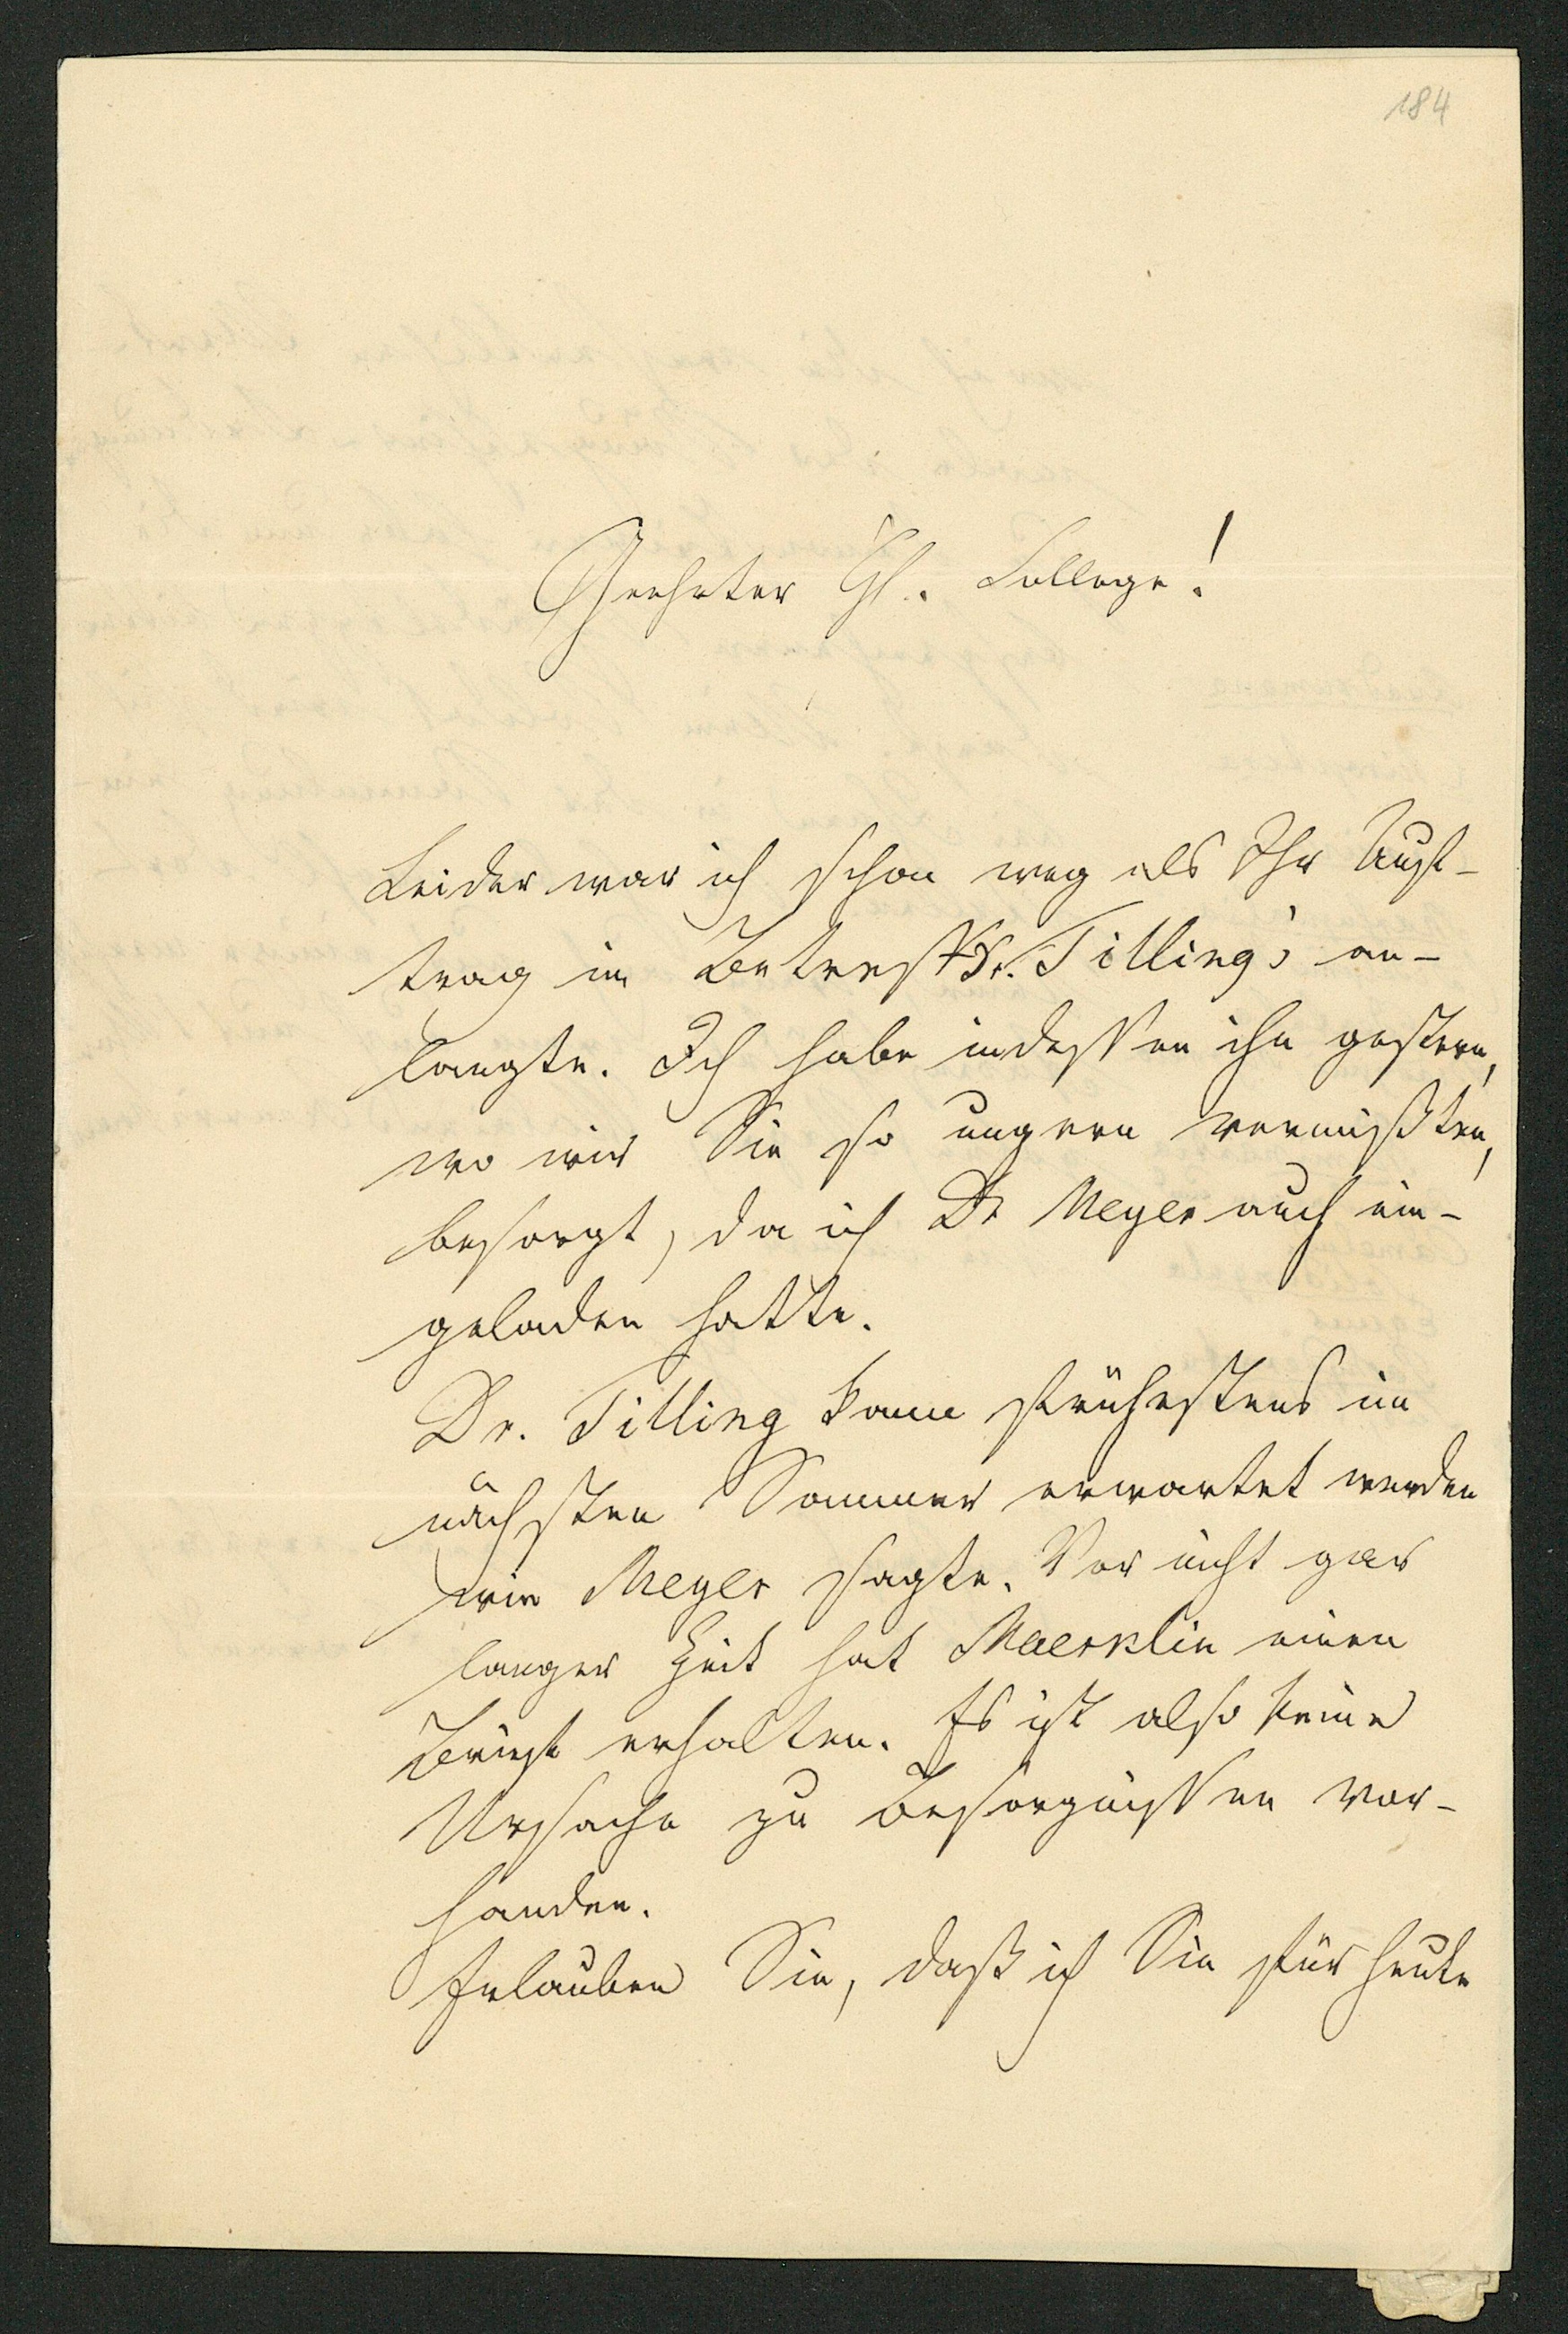 184
Geehrter H. College!
Leider war ich schon weg als Ihr Auf-
trag in Betreff Dr. Tilling's an-
langte. Ich habe indessen ihn gestern,
wo wir Sie so ungern vermißten,
besorgt, da ich Dr Meyer auch ein-
geladen hatte.
Dr. Tilling kann frühestens im
nächsten Sommer erwartet werden
wie Meyer sagte. Vor nicht gar
langer Zeit hat Maerklin einen
Brief erhalten. Es ist also keine
Ursache zu Besorgnissen vor-
handen.
Erlauben Sie, daß ich Sie für heute